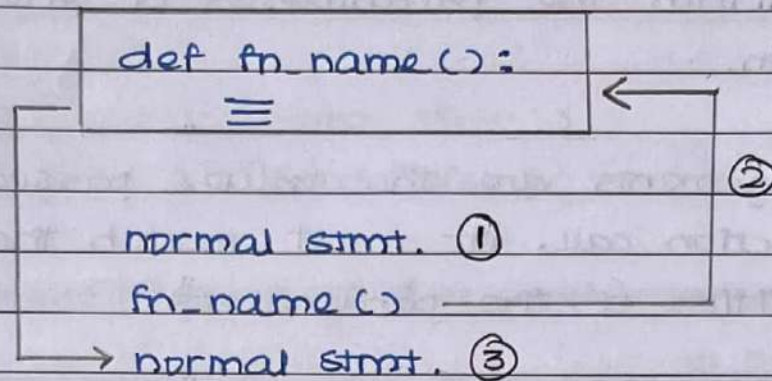 def fn_name():
②
normal stmt. ①
fn_name()
normal stmt. ③